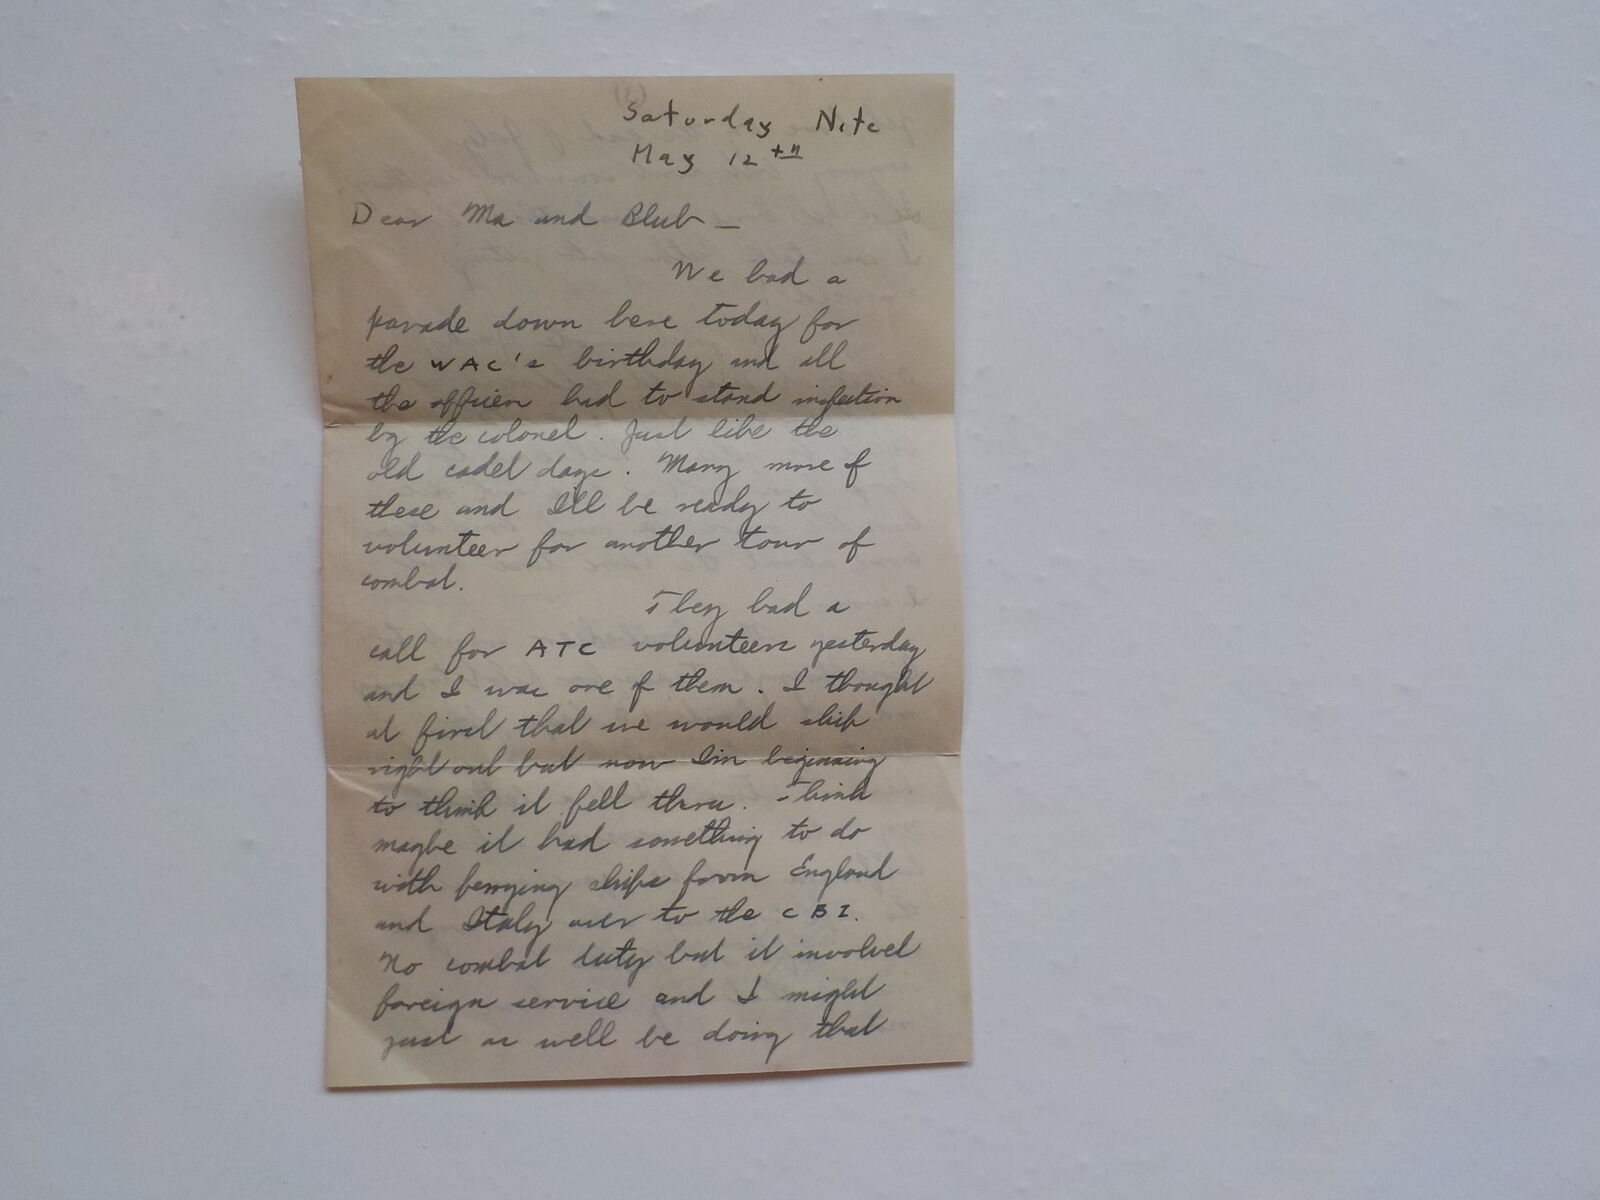 Saturday Nite
May 12th
Dear Ma and Blub —
We had a
parade down here today for
the WAC's birthday and all
the officers had to stand inspection
by the colonel. Just like the
old cadet days. Many more of
these and I'll be ready to
volunteer for another tour of
combat.
They had a
call for ATC volunteers yesterday
and I was one of them. I thought
at first that we would ship
right out but now I'm beginning
to think it fell thru. Think
maybe it had something to do
with ferrying ships from England
and Italy over to the CBI.
No combat duty but it involved
foreign service and I might
just as well be doing that